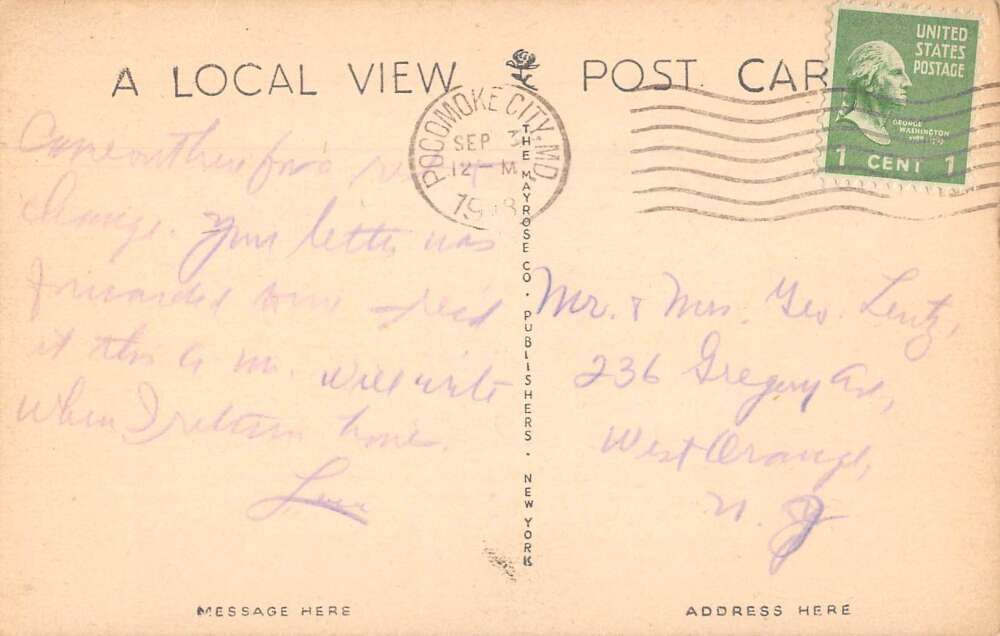 A LOCAL VIEW POST CAR
UNITED
STATES
POSTAGE
GEORGE
WASHINGTON
1 CENT 1
POCOMOKE CITY, MD.
SEP 3
12 M
19 8
Come on here for a rest &
change. Your letter was
forwarded here rec'd
it this a. m. Will write
when I return home.
THE MAYROSE CO. PUBLISHERS. NEW YORK
Mr. & Mrs. Geo. Lentz,
236 Gregory Ave,
West Orange,
N. J.
MESSAGE HERE
ADDRESS HERE